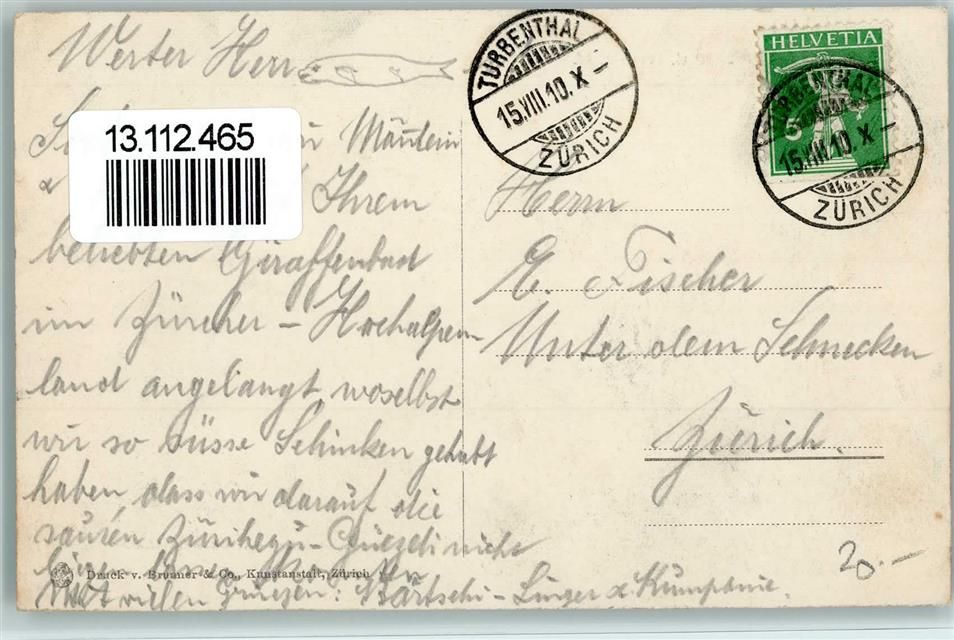 Werter Herr
13.112.465
Mäntein
&
Ihrem
beliebten Giraffenbad
im Zürcher-Hochalpen-
land angelangt, woselbst
wir so süsse Schinken gehabt
haben, dass wir darauf die
sauren Zürihegu-Güezeli nicht
Mit vielen Grüssen: Märtschi-Singer & Kumpanie.
Druck v. Brunner & Co., Kunstanstalt, Zürich
TURBENTHAL
15.VIII.10.X-
ZÜRICH
HELVETIA
5
TURBENTHAL
15.VIII.10.X-
ZÜRICH
Herrn
E. Fischer
Unter dem Schnecken
Zürich.
20.-